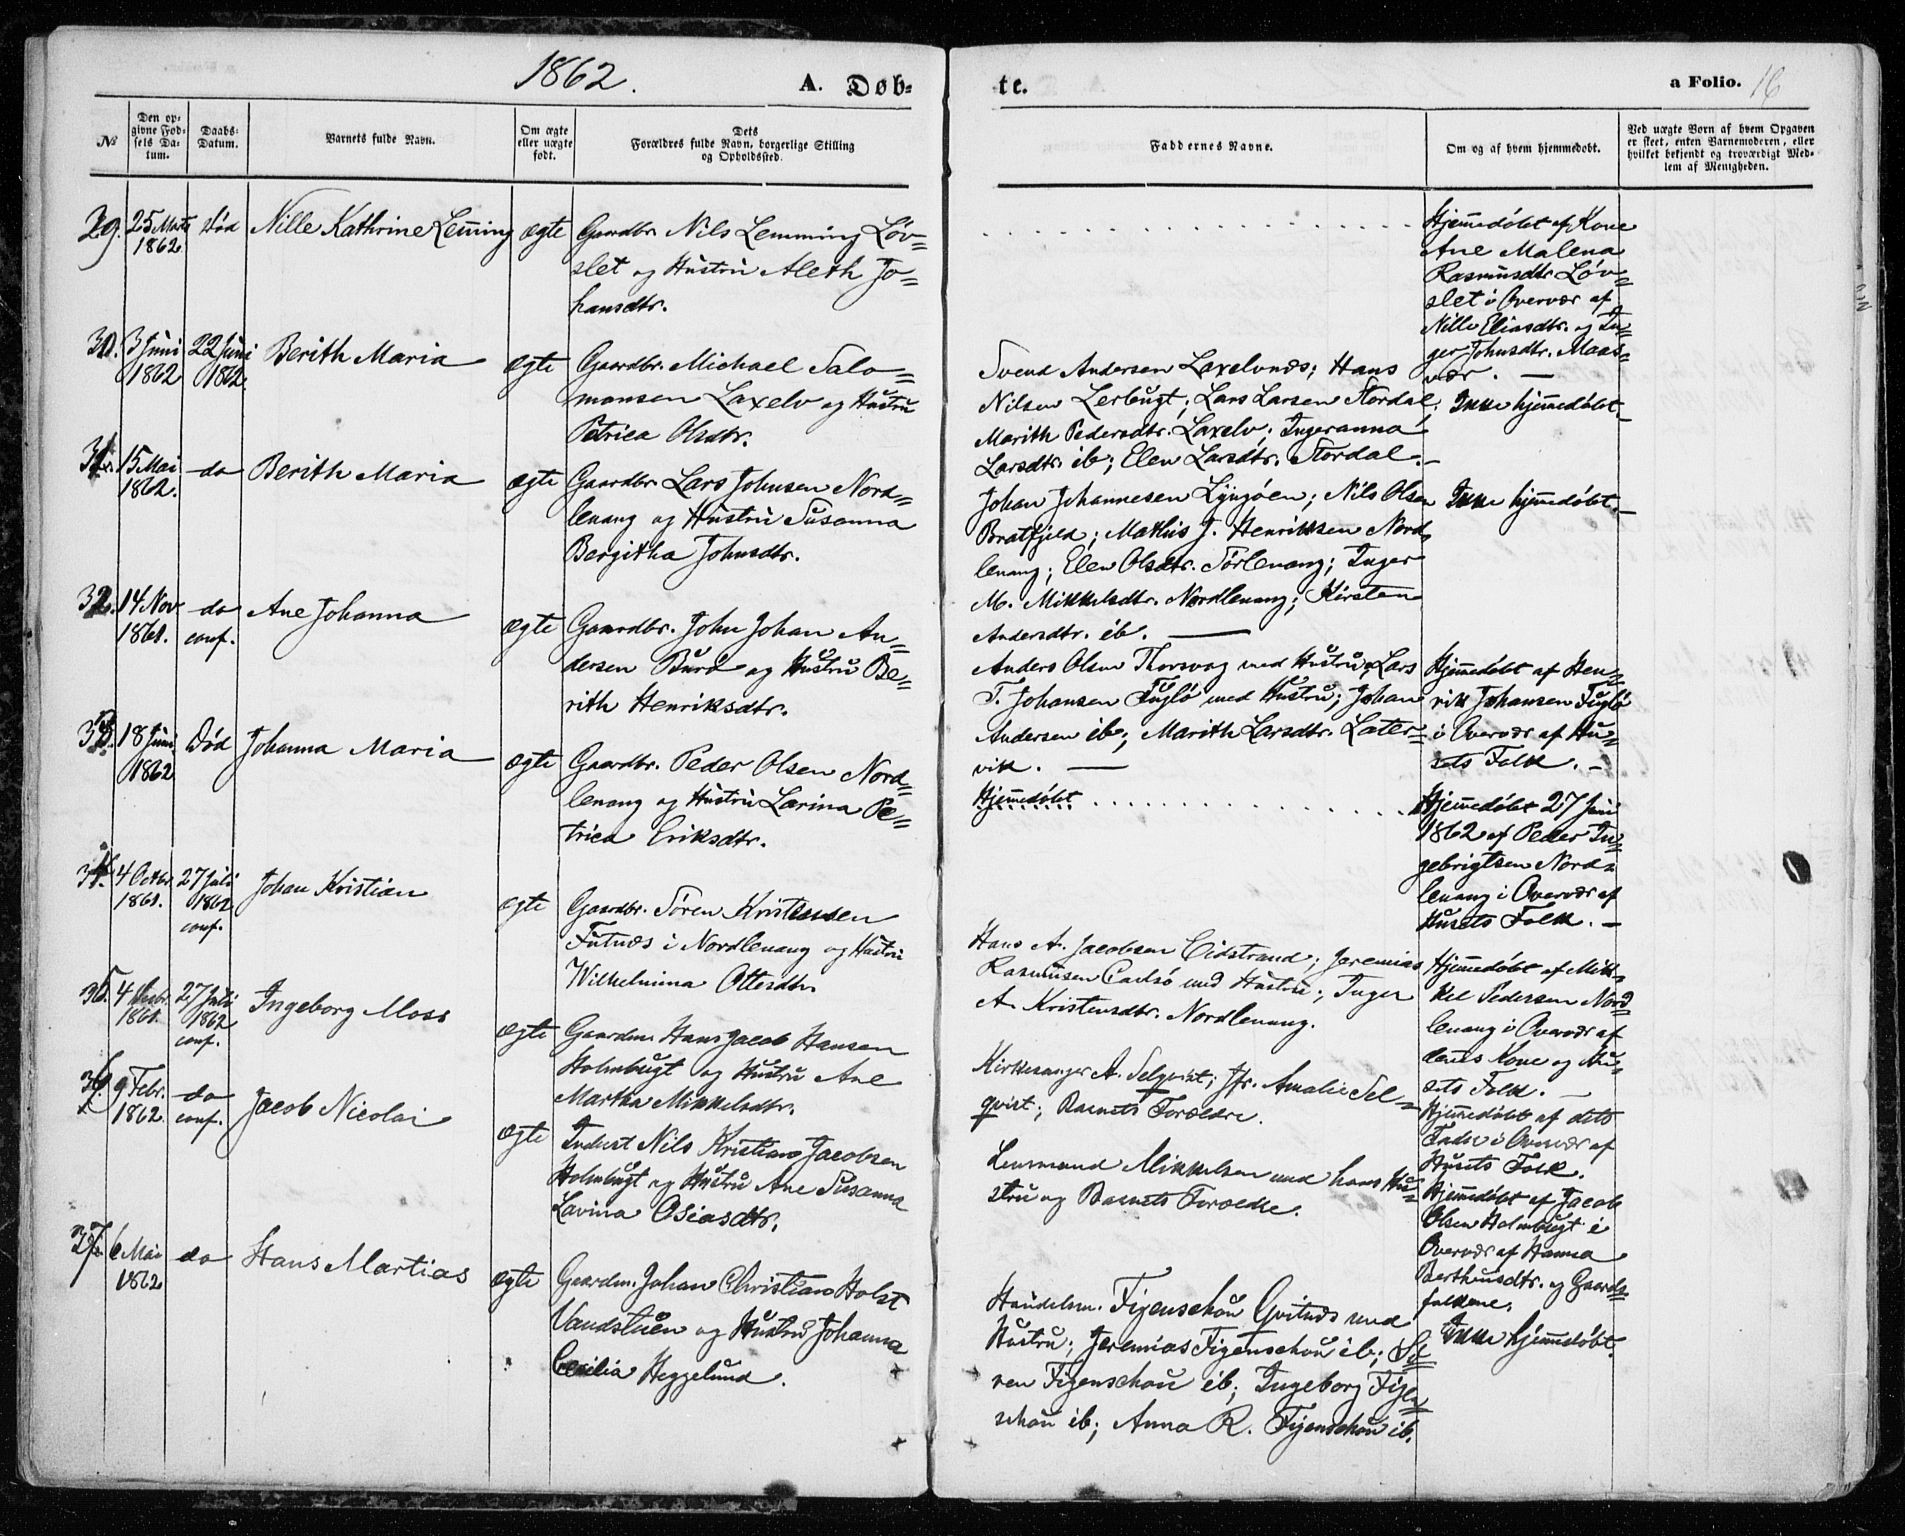 1862.
A. Døb-
te.
a Folio. 16
№
Den op-
givne Fød-
sels Da-
tum.
Daabs-
Datum.
Barnets fulde Navn.
Om ægte
eller uægte
født.
Dets
Forældres fulde Navn, borgerlige Stilling
og Opholdssted.
Faddernes Navne.
Om og af hvem hjemmedøbt.
Ved uægte Børn af hvem Opgaven
er skeet, enten Barnemoderen, eller
hvilket bekjendt og troværdigt Med-
lem af Menigheden.
29.
25 Marts
1862
Død
Nille Kathrine Leming
ægte
Gaardbr. Nils Lemming Løv-
slet og Hustru Aleth Jo-
hansdtr.
Hjemedøbt af Kone
Ane Malena
Rasmusdtr. Løv-
slet i Overvær af
Nille Eliasdtr. og In-
ger Johnsdtr. Maas-
vær. —
30.
3 Juni
1862
22 Juni
1862
Berith Maria
ægte
Gaardbr. Michael Salo-
monsen Laxelv og Hustru
Petrica Olsdtr.
Svend Andersen Laxelvnæs; Hans
Nilsen Lerbugt; Lars Larsen Stordal;
Marith Pedersdtr. Laxelv; Ingeranna
Larsdtr. ib; Elen Larsdtr. Stordal. —
Ikke hjemedøbt
31.
15 Mai
1862.
do
Berith Maria
ægte
Gaardbr. Lars Johnsen Nord-
lenang og Hustru Susanna
Bergitha Johnsdtr.
Johan Johannesen Lyngøen; Nils Olsen
Bratfjeld; Mathis J. Henriksen Nord-
lenang; Elen Olsdtr. Sørlenang; Inger
M. Mikkelsdtr. Nordlenang; Kirsten
Andersdtr. ib. —
Ikke hjemedøbt. —
32.
14 Nov.
1861.
do
conf.
Ane Johanna
ægte
Gaardbr. John Johan An-
dersen Burd og Hustru Be-
rith Henriksdtr.
Anders Olsen Thorsvag med Hustru; Lars
T. Johansen Fuglø med Hustru; Johan
Andersen ib; Marith Larsdtr. Later-
vik. —
Hjemedøbt af Hen-
rik Johansen Fuglø
i Overvær af Hu-
sets Folk. —
33.
18 Juni
1862
Død
Johanna Maria
ægte
Gaardbr. Peder Olsen Nord-
lenang og Hustru Larina Pe-
trica Eriksdtr.
Hjemedøbt
Hjemedøbt 27 Juni
1862 af Peder In-
gebrigtsen Nord-
lenang i Overvær af
Husets Folk. —
34.
4 Octbr.
1861.
27 Juli
1862
conf.
Johan Kristian
ægte
Gaardbr. Søren Kristensen
Futnæs i Nordlenang og Hustru
Wilhelmina Ottesdtr.
Hans A. Jacobsen Eidstrand; Jeremias
Rasmusen Carlsø med Hustru; Inger
A. Kristensdtr. Nordlenang.
Hjemedøbt af Mik-
kel Pedersen Nord-
lenang i Overvær af
dens Kone og Hu-
sets Folk. —
35.
1861.
27 Juli
1862
conf.
Ingeborg Moss
ægte
Gaardm. Hans Jacob Hansen
Holmbugt og Hustru Ane
Martha Mikkelsdtr.
Kirkesanger A. Selqvist; Jfr. Amalie Sel-
qvist; Barnets Forældre.
Hjemedøbt af dets
Fader i Overvær af
Husets Folk.
36.
9 Febr.
1862.
do
conf.
Jacob Nicolai
ægte
Inderst Nils Kristian Jacobsen
Holmbugt og Hustru Ane Susanna
Lavina Osiasdtr.
Lensmand Mikkelsen med hans Hu-
stru og Barnets Forældre.
Hjemedøbt af Jacob
Olsen Holmbugt i
Overvær af Hanna
Berthusdtr. og Gaards-
folkene.
37.
6 Mai
1862
do
Hans Martias
ægte
Gaardm. Johan Christian Holst
Vandstuen og Hustru Johanna
Cecilia Heggelund.
Handelsm. Figenschou Qvitnæs med
Hustru; Jeremias Figenschou ib; Sø-
ren Figenschou ib; Ingeborg Figen-
schou ib; Anna R. Figenschou ib.
Ikke hjemedøbt.